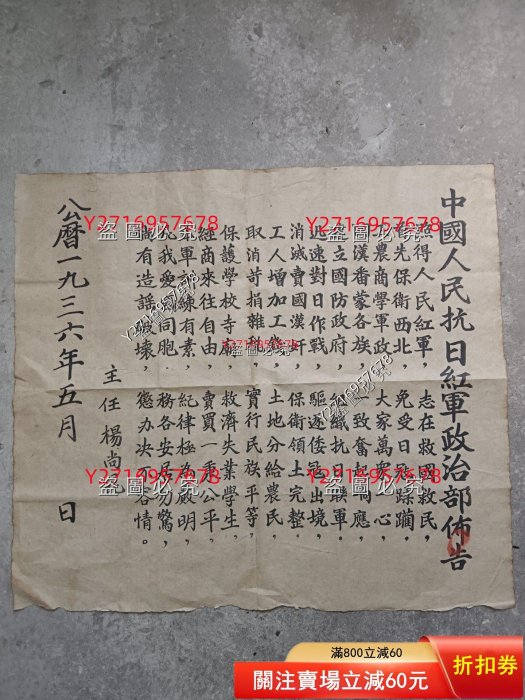 中國人民抗日紅軍政治部佈告
得人民紅軍，志在救國救民，
先保衛西北，免受日寇蹂躪。
農商學軍政，大家萬眾一心，
漢番蒙各族，一致奮起同應，
立國防政府，組織抗日聯軍。
迅速對日作戰，驅逐倭寇出境，
消滅賣國漢奸，保衛領土完整。
工人增加工資，土地分給農民，
取消苛捐雜稅，實行民族平等，
保護學校寺廟，救濟失業學生，
經商來往自由，賣買一秉公平，
紅軍訓練有素，紀律極為嚴明，
凡我愛國同胞，務各安居勿驚，
倘有造謠破壞，懲办决不容情。
主任楊尚昆
公曆一九三六年五月 日
Y2716957678
盜圖必究
Y2716957678
盜圖必究
Y2716957678
盜圖必究
Y2716957678
盜圖必究
Y2716957678
盜圖必究
Y2716957678
盜圖必究
Y2716957678
盜圖必究
滿800立減60
關注賣場立減60元
折扣券